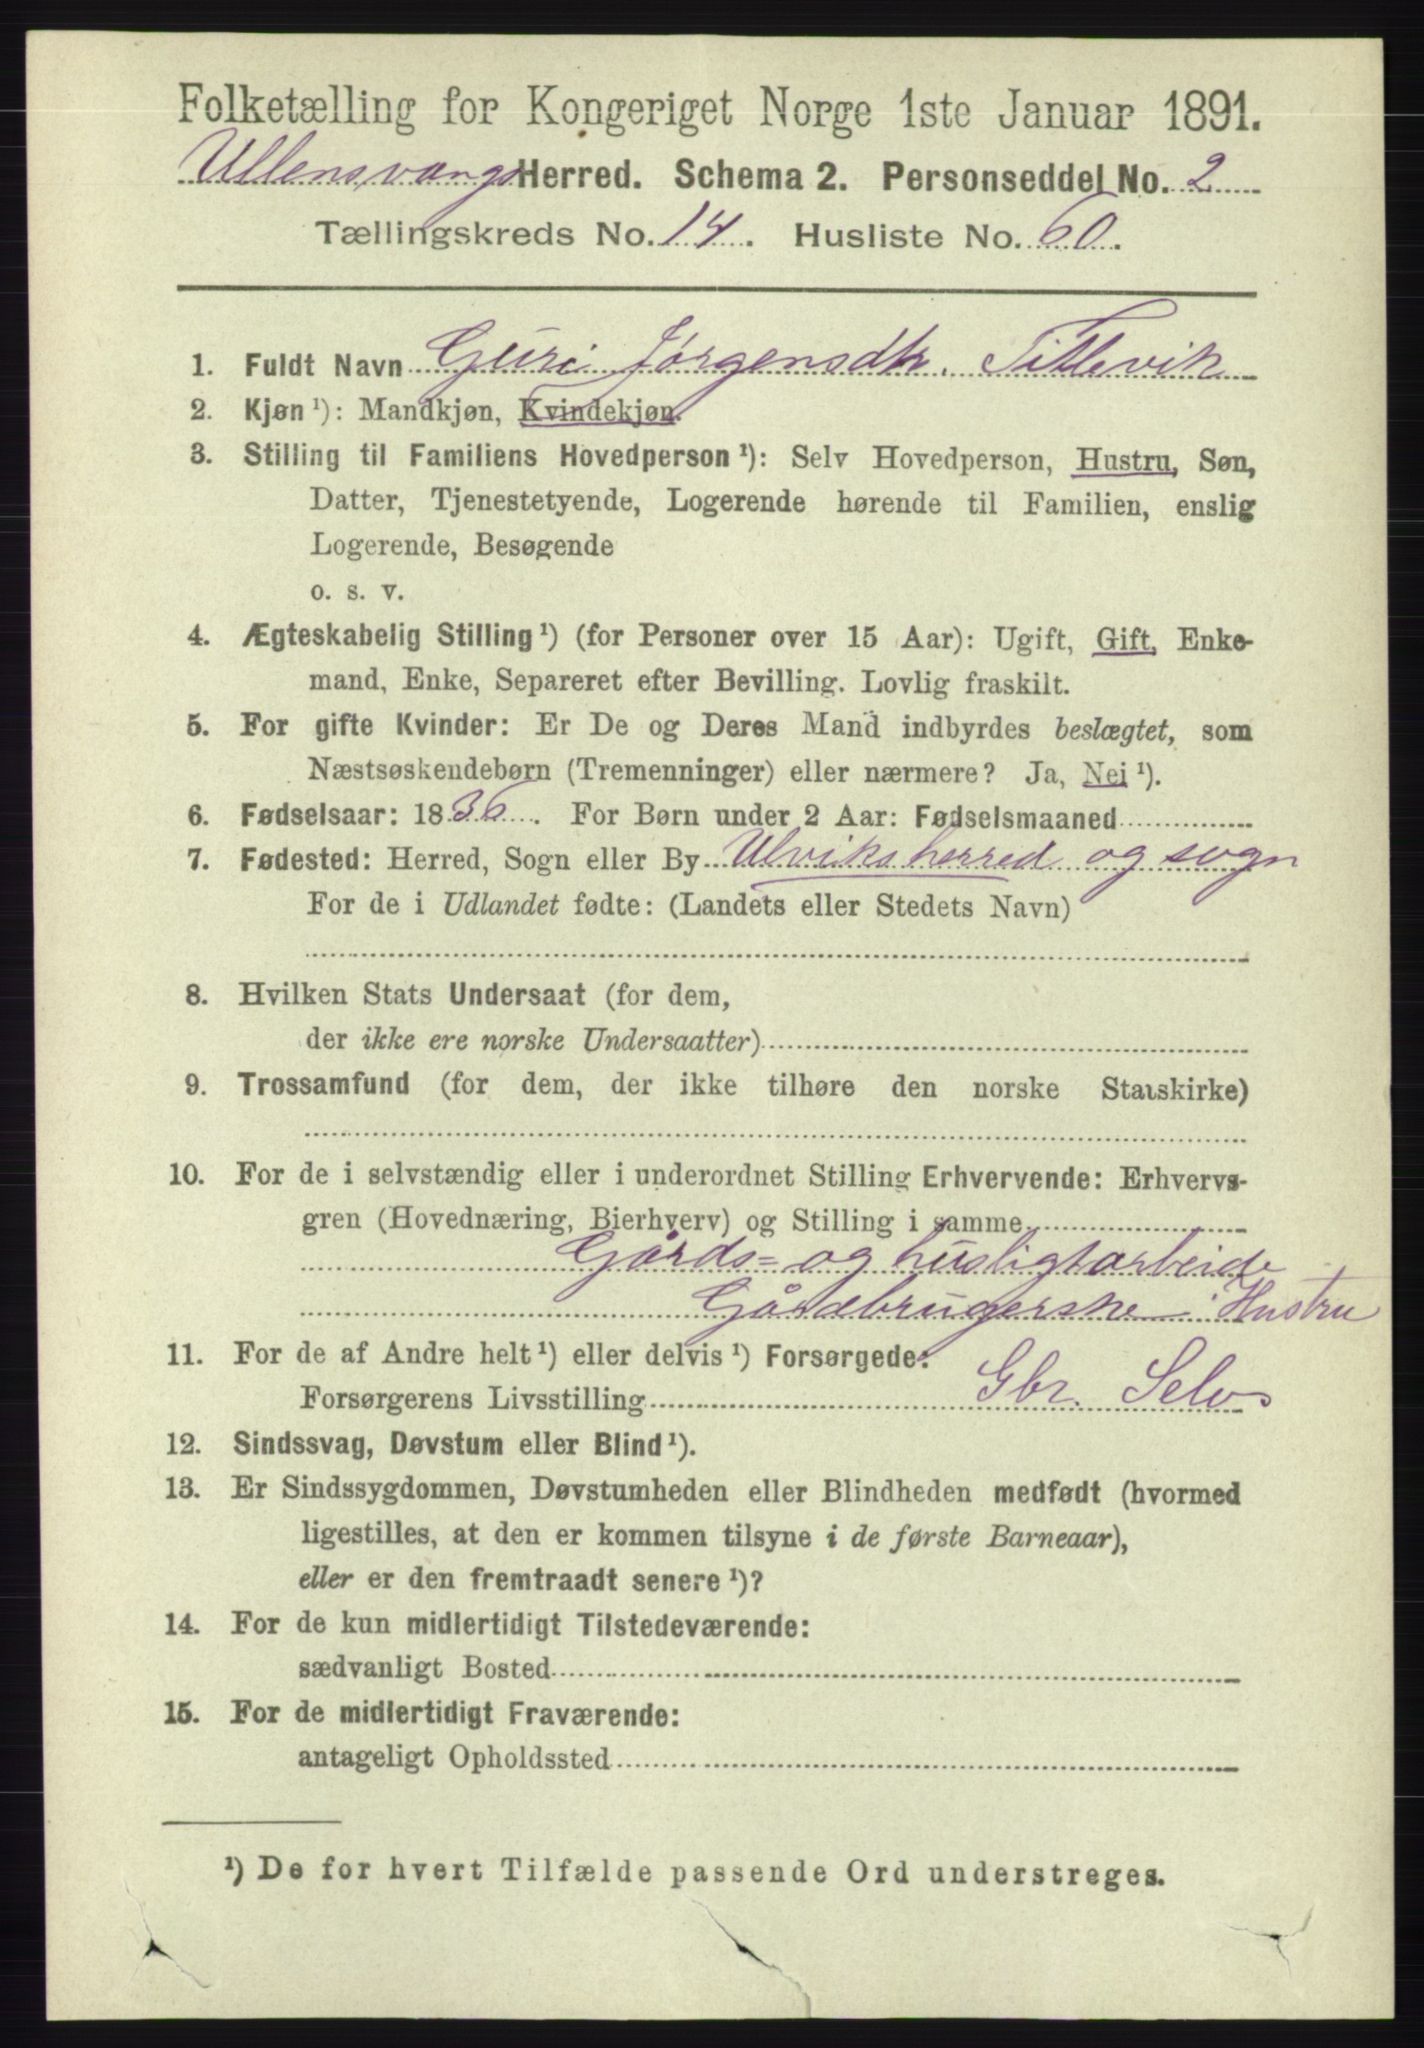 Folketælling for Kongeriget Norge 1ste Januar 1891.
Ullensvangs Herred. Schema 2. Personseddel No. 2
Tællingskreds No. 14. Husliste No. 60.
1. Fuldt Navn Guri Jørgensdtr. Tittevik
2. Kjøn ¹): Mandkjøn, Kvindekjøn.
3. Stilling til Familiens Hovedperson ¹): Selv Hovedperson, Hustru, Søn,
Datter, Tjenestetyende, Logerende hørende til Familien, enslig
Logerende, Besøgende
o. s. v.
4. Ægteskabelig Stilling ¹) (for Personer over 15 Aar): Ugift, Gift, Enke-
mand, Enke, Separeret efter Bevilling. Lovlig fraskilt.
5. For gifte Kvinder: Er De og Deres Mand indbyrdes beslægtet, som
Næstsøskendebørn (Tremenninger) eller nærmere? Ja, Nei ¹).
6. Fødselsaar: 1836. For Børn under 2 Aar: Fødselsmaaned
7. Fødested: Herred, Sogn eller By Ulviks herred og sogn
For de i Udlandet fødte: (Landets eller Stedets Navn)
8. Hvilken Stats Undersaat (for dem,
der ikke ere norske Undersaatter)
9. Trossamfund (for dem, der ikke tilhøre den norske Statskirke)
10. For de i selvstændig eller i underordnet Stilling Erhvervende: Erhvervs-
gren (Hovednæring, Bierhverv) og Stilling i samme
Gårds- og husligtarbeide
Gårdbrugerske Hustru
11. For de af Andre helt ¹) eller delvis ¹) Forsørgede:
Forsørgerens Livsstilling Gbr. Selv
12. Sindssvag, Døvstum eller Blind ¹).
13. Er Sindssygdommen, Døvstumheden eller Blindheden medfødt (hvormed
ligestilles, at den er kommen tilsyne i de første Barneaar),
eller er den fremtraadt senere ¹)?
14. For de kun midlertidigt Tilstedeværende:
sædvanligt Bosted
15. For de midlertidigt Fraværende:
antageligt Opholdssted
¹) De for hvert Tilfælde passende Ord understreges.